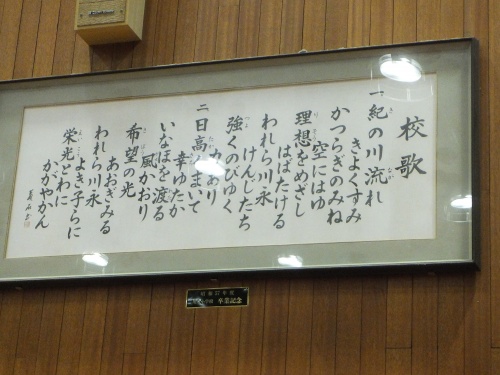 校歌
一 紀の川流れ
きよくすみ
かつらぎのみね
空にはゆ
理想をめざし
はばたける
われら川永
けんじたち
強くのびゆく
二 日高
まいて
幸ゆたか
いなほを渡る
風かおり
希望の光
あおぎみる
われら川永
よき子らに
栄光とわに
かがやかん
卒業記念